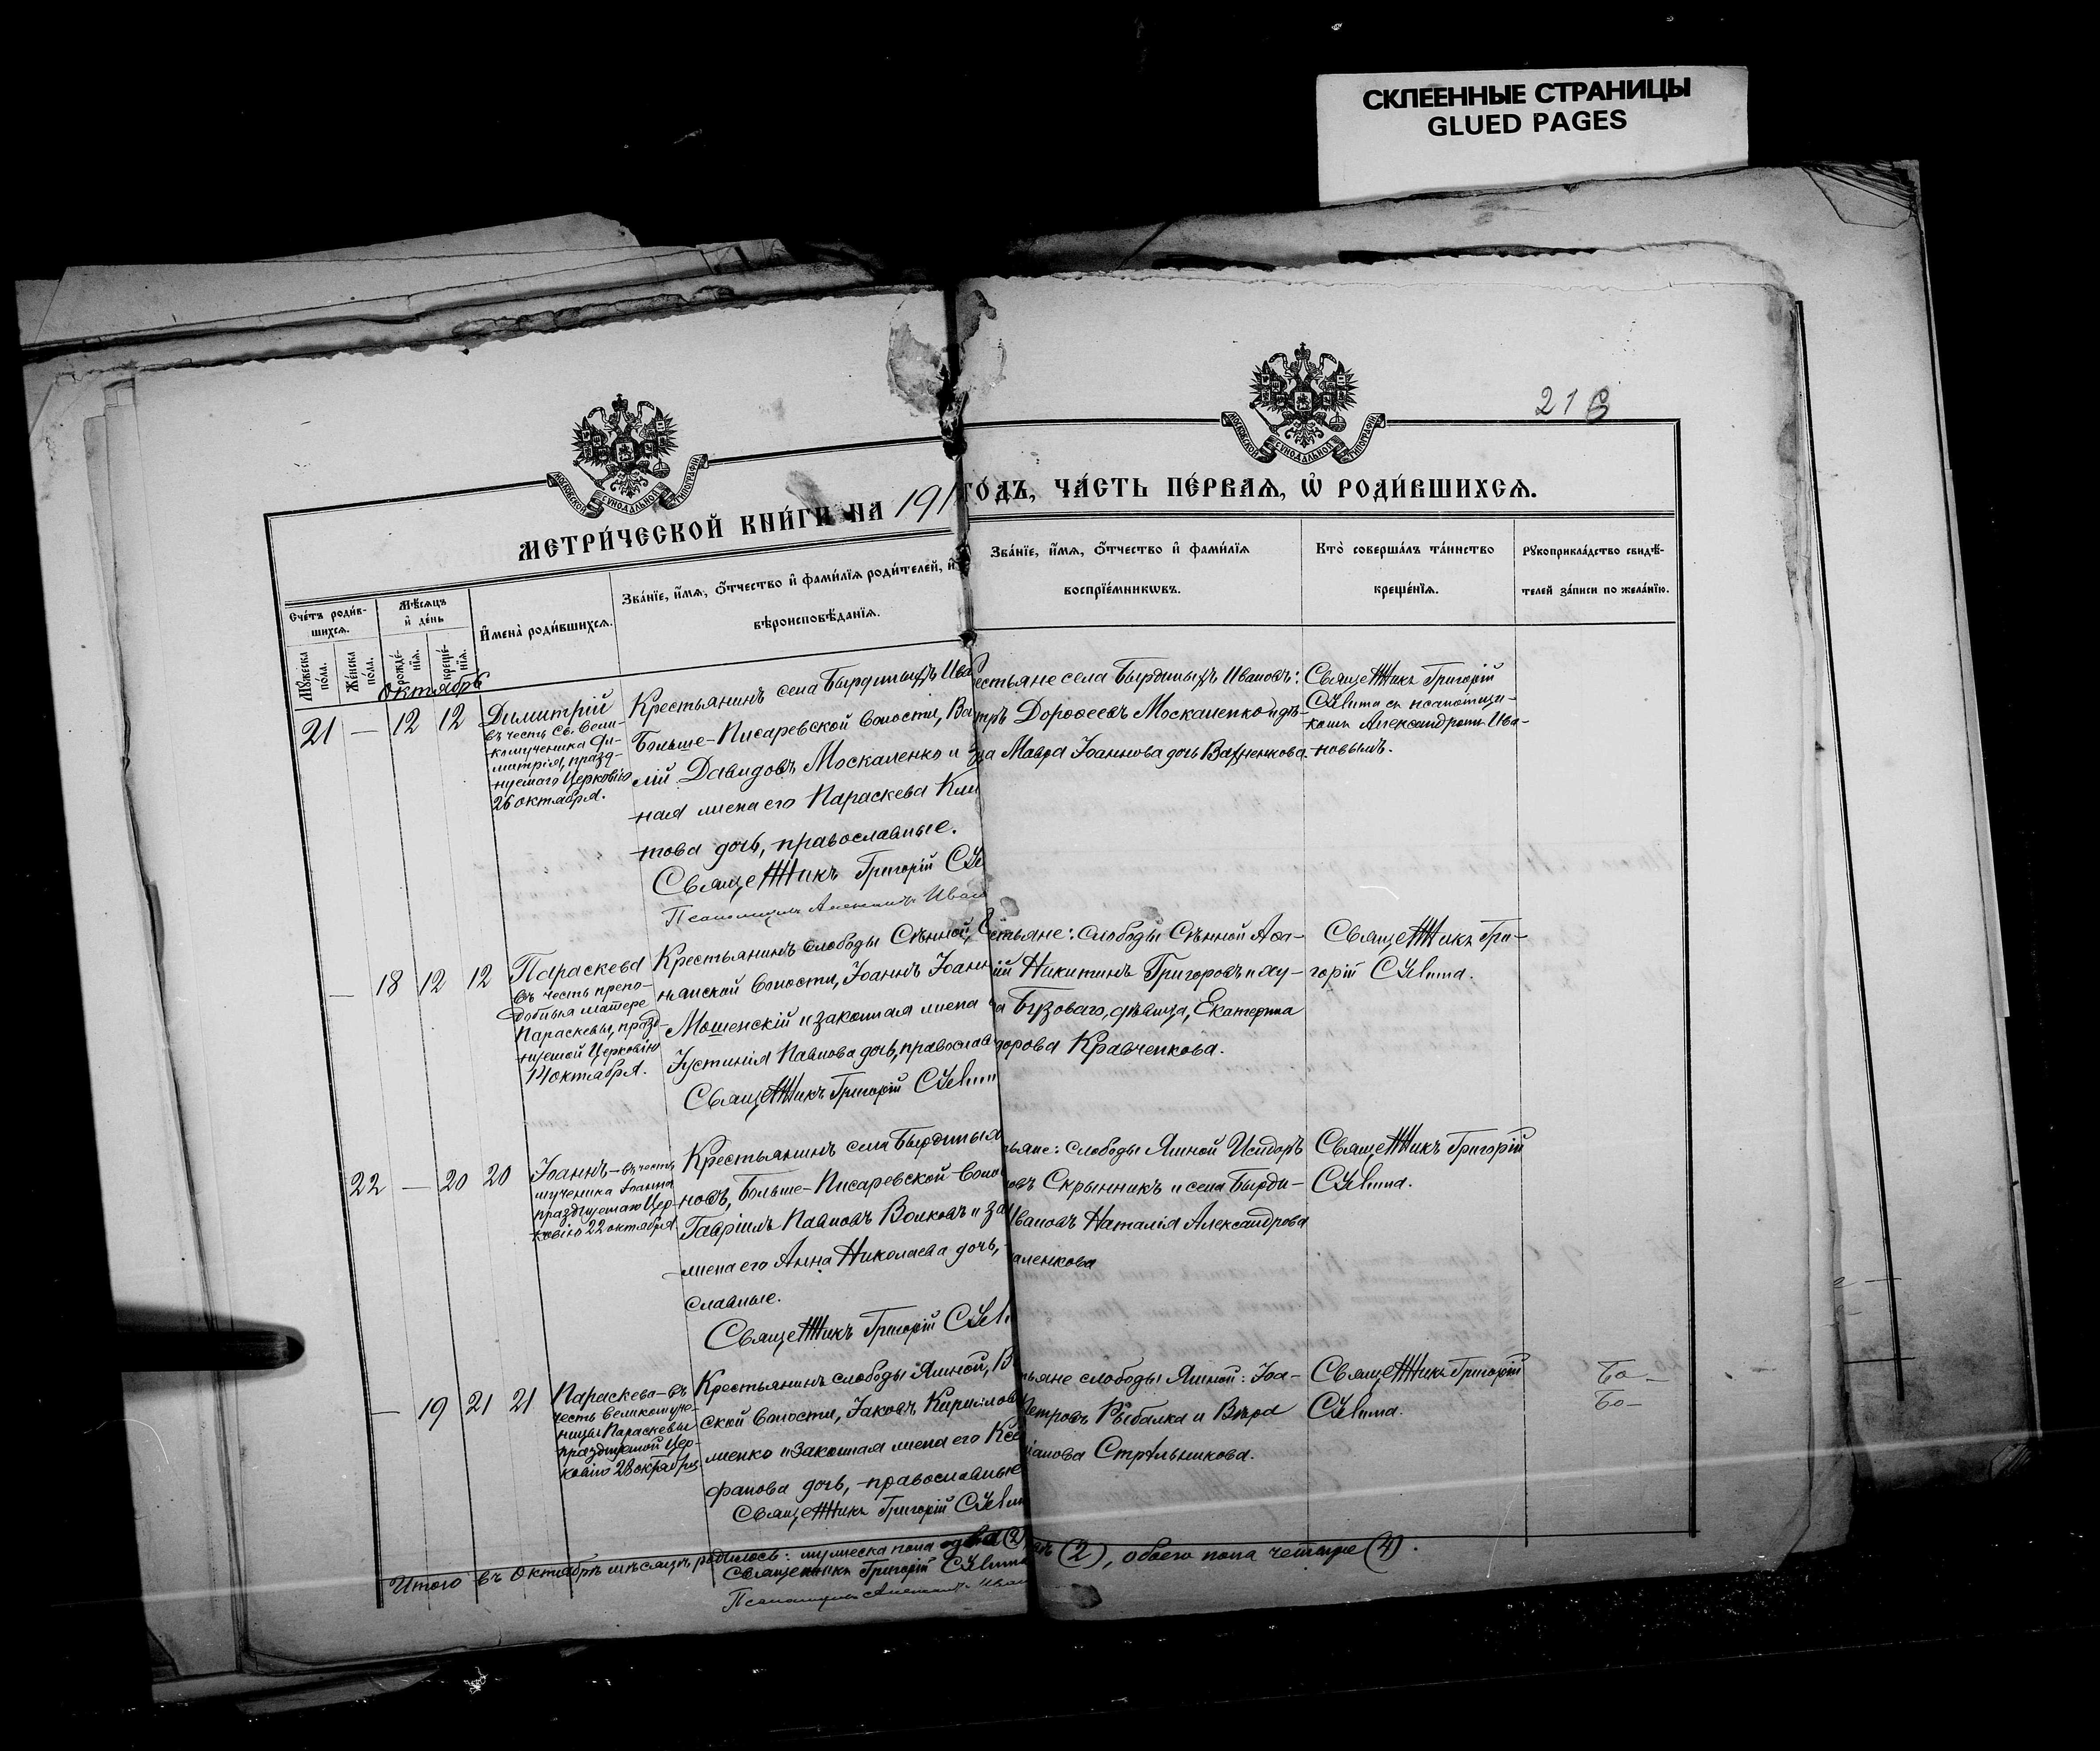 СКЛЕЕННЫЕ СТРАНИЦЫ
GLUED PAGES
21
МОСКОВСКОЙ СѴНОДАЛЬНОЙ ТИПОГРАФІИ
МОСКОВСКОЙ СѴНОДАЛЬНОЙ ТИПОГРАФІИ
МЕТРИ́ЧЕСКОЙ КНИ́ГИ НА 191
ГО́ДЪ, ЧА́СТЬ ПЕ́РВАѦ, Ѡ҆ РОДИ́ВШИХСѦ.
Сче́тъ роди́в-
шихсѧ.
Мꙋ́жеска
по́ла.
Же́нска
по́ла.
Мѣ́сѧцъ
и҆ де́нь
рожде́-
нїѧ.
креще́-
нїѧ.
И҆мена̀ роди́вшихсѧ.
Зва́нїе, и҆́мѧ, ѻ҆́тчество и҆ фами́лїѧ роди́телей, и҆
вѣроисповѣ́данїѧ.
Зва́нїе, и҆́мѧ, ѻ҆́тчество и҆ фами́лїѧ
воспрїе́мникѡвъ.
Кто̀ соверша́лъ та́инство
креще́нїѧ.
Рꙋкоприкла́дство свидѣ́-
телей за́писи по жела́нїю.
Октябрь
21 — 12 12
Димитрій
въ честь Св. Вели-
комученика Ди-
митрія, празд-
нуемаго Церковію
26 октября.
Крестьянинъ села Бырдиныхъ Ива
Больше-Писаревской волости, Ва
лій Давидовъ Москаленко и за
ная жена его Параскева Кли
това дочь, православные.
Священникъ Григорій
Псаломщикъ Александръ Иван
естьяне села Бырдиныхъ Ивановъ:
тръ Дороѳеевъ Москаленко и дѣ-
ца Мавра Іоаннова дочь Вахненкова.
Священникъ Григорій
съ псаломщи-
комъ Александромъ Ива-
новымъ.
— 18 12 12
Параскева
въ честь препо-
добныя матере
Параскевы, празд-
нуемой Церковію
14 октября.
Крестьянинъ слободы Сѣнной,
нянской волости, Іоаннъ Іоанн
Мошенскій и законная жена
Іустинія Павлова дочь, православ
Священникъ Григорій
стьяне: слободы Сѣнной Аѳа-
ій Никитинъ Григоровъ и ху-
ра Бузоваго, дѣвица, Екатерина
дорова Кравченкова.
Священникъ Гри-
горій
22 — 20 20
Іоаннъ – въ честь
мученика Іоанна
празднуемаго Цер-
ковію 22 октября
Крестьянинъ села Бырдиныхъ
новъ, Больше-Писаревской воло
Гавріилъ Павловъ Волковъ и за
жена его Анна Николаева дочь,
славные.
Священникъ Григорій
ьяне: слободы Ямной Исидоръ
овъ Скрынникъ и села Бырди-
Ивановъ Наталія Александрова
аленкова
Священникъ Григорій
— 19 21 21
Параскева – въ
честь великомуче-
ницы Параскевы
празднуемой Цер-
ковію 28 октября
Крестьянинъ слободы Ямной, В
ской волости, Іаковъ Кирилловъ
менко и законная жена его Ксе
фанова дочь, – православные
Священникъ Григорій
ьяне слободы Ямной: Іоа-
Петровъ Рыбалка и Вѣра
іанова Стрѣльникова.
Священникъ Григорій
Итого въ Октябрѣ мѣсяцѣ родилось: мужеска пола два (2)
(2), обоего пола четыре (4).
Священникъ Григорій
Псаломщикъ Александръ Иван